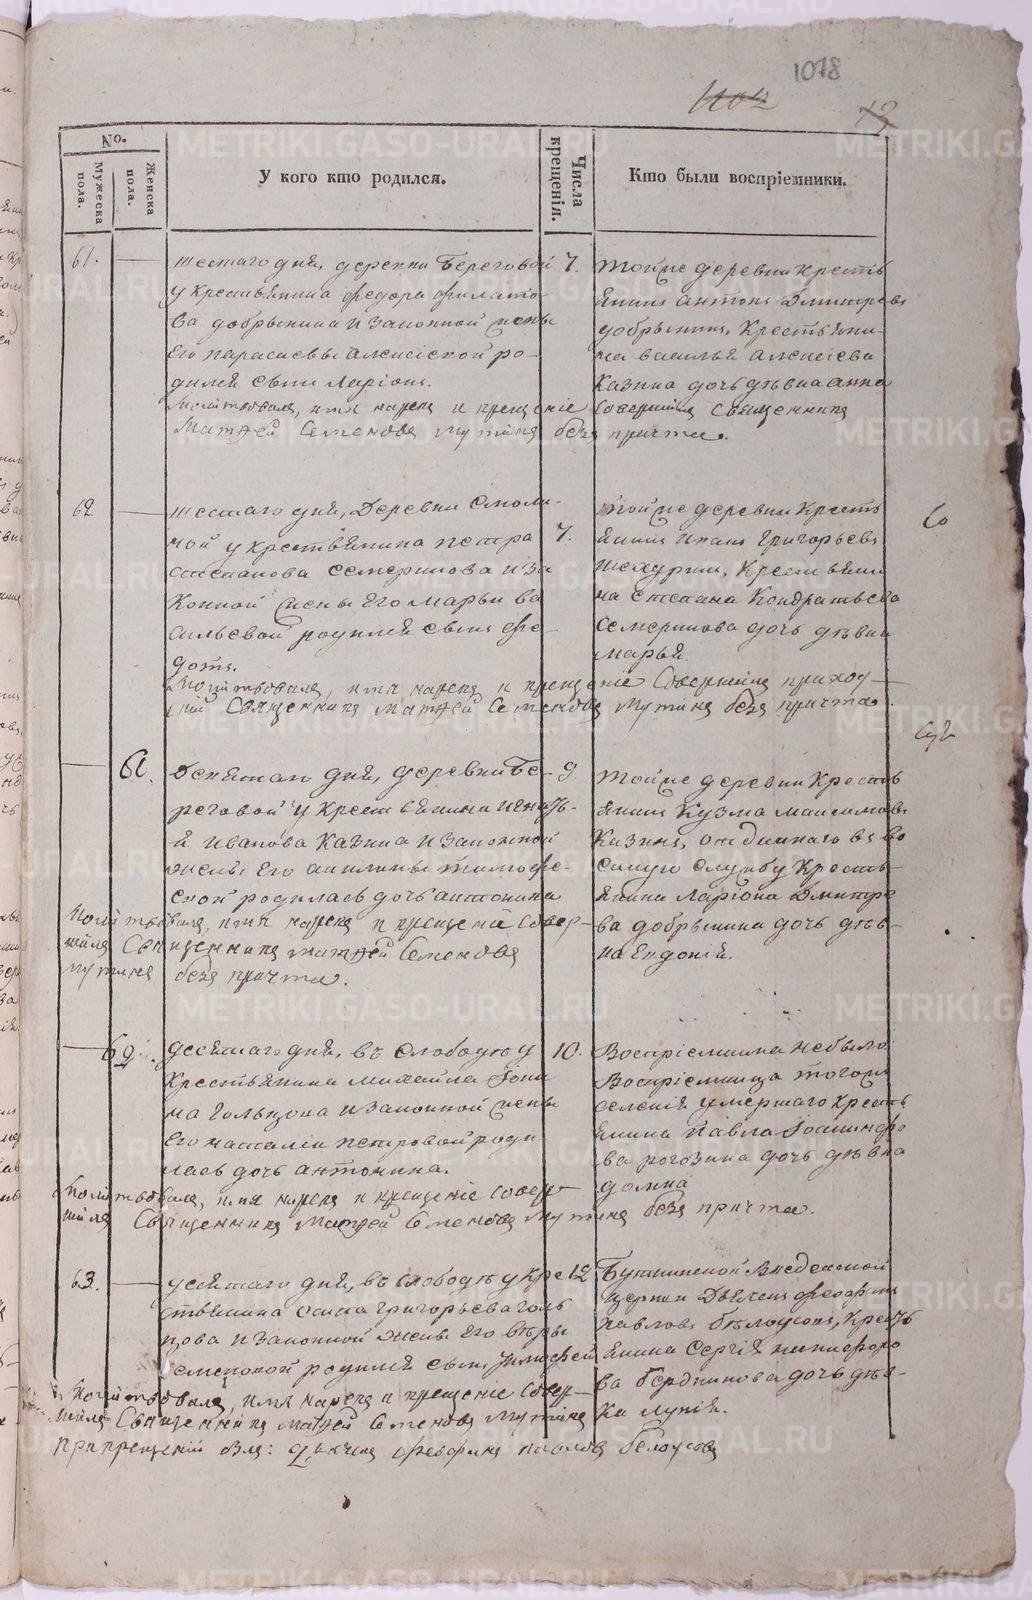 1078
No.
Мужеска пола.
Женска пола.
У кого кто родился.
Числа крещенія.
Кто были воспріемники.
61.
шестаго дня, деревни Береговой
у крестьянина Федора Филато
ва добрынина и законной жены
Его парасковьи Алексіевой ро-
дился сынъ Ларіонъ.
7.
тойже деревни крестья
янинъ Антонъ Дмитревъ
добрынинъ, крестьяни-
на василья Алексіева
Казина дочь дѣвка анна
Молитвовалъ, имя нарекъ и крещеніе совершилъ священникъ
Матѳей Семеновъ Мутинъ безъ причта.
62
шестаго дня, Деревни Смоли-
ной у крестьянина петра
степанова семеринова и за
конной жены Его марьи ва
сильевой родился сынъ Фе-
дотъ.
7.
тойже деревни кресть
янинъ Григорьевъ
крестьяни
на степана Кондратьева
семеринова дочь дѣвка
марья
Молитвовалъ, имя нарекъ и крещеніе совершилъ приход-
ній священникъ матѳей Семеновъ Мутинъ безъ причта.
61.
Девятаго дня, деревни Бе-
реговой у крестьянина
й Иванова Казина и законной
жены Его акилины тимофе-
евой родилась дочь антонина
9.
тойже деревни кресть
янинъ Кузма максимовъ
Казинъ, отданнаго въ во
енную службу кресть-
янина Ларіона Дмитре
ва добрынина дочь дѣв-
ка Евдокія.
Молитвовалъ, имя нарекъ и крещеніе совер-
шилъ священникъ матѳей Семеновъ
мутинъ безъ причта.
62.
десятаго дня, въ слободѣ у
крестьянина михайла Іони
на Гольцова и законной жены
Его наталіи петровой роди
лась дочь антонина.
10.
Воспріемника небыло
Воспріемница тогожъ
селенія умершаго кресть
янина Павла
ва рогозина дочь дѣвка
домна
Молитвовалъ, имя нарекъ и крещеніе совер-
шилъ священникъ матѳей Семеновъ Мутинъ безъ причта.
63.
десятаго дня, въ слободѣ у кре
стьянина осипа григорьева голь
цова и законной жены Его вѣры
семеновой родился сынъ тимофей
12
Буткинской Введенской
церкви дьячекъ феофанъ
павловъ бѣлоусовъ, кресть
янина Сергія никифоро
ва бердникова дочь дѣв-
ка Лукія.
Молитвовалъ, имя нарекъ и крещеніе совер-
шилъ священникъ матѳей Семеновъ Мутинъ
При крещеніи былъ: дьячекъ феофанъ павловъ белоусовъ